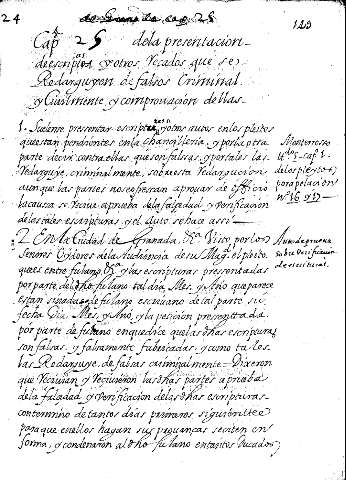 24
123
Cap.º 25 de la presentacion
de escriptas y otros recados que se
Redarguyen de falsos Criminal
y Ciuilmente y comprouacion dellas.
1. Suelense presentar escripras y otros autos en los pleitos
que estan pendientes en la chancilleria, y por la otra
parte decir contra ellas que son falsas, y por tales las
redarguye, criminalmente, sobre esta redarguicion
aunque las partes no se ofrescan a prouar de officio
la causa se reciue aprueba de la falsedad y verificacion
de las tales escripturas, y el auto se hace assi
Monterroso
2. En la Ciudad de Granada, &.ª Visto por los
Señores Oydores de la Audiencia de su Mag. el pleito
que es entre fulano &.ª y las escripturas presentadas
por parte del dho fulano tal dia, Mes, y Año que parece
estan signadas de fulano escriuano de tal parte su
fecha Dia, Mes, y Año, y la peticion presentada
por parte de fulano en que dice que las dhas escripturas
son falsas, y falsamente fabricadas y como tales
las Redarguye de falsas criminalmente = Dixeron
que reciuian y reciuieron las dhas partes a prueba
de la falsedad y verificacion de las dhas escripturas
con termino de tantos dias primeros siguientes
para que en ellos hagan sus prouanças
forma, y condenaron al dho fulano en tantos Ducados,